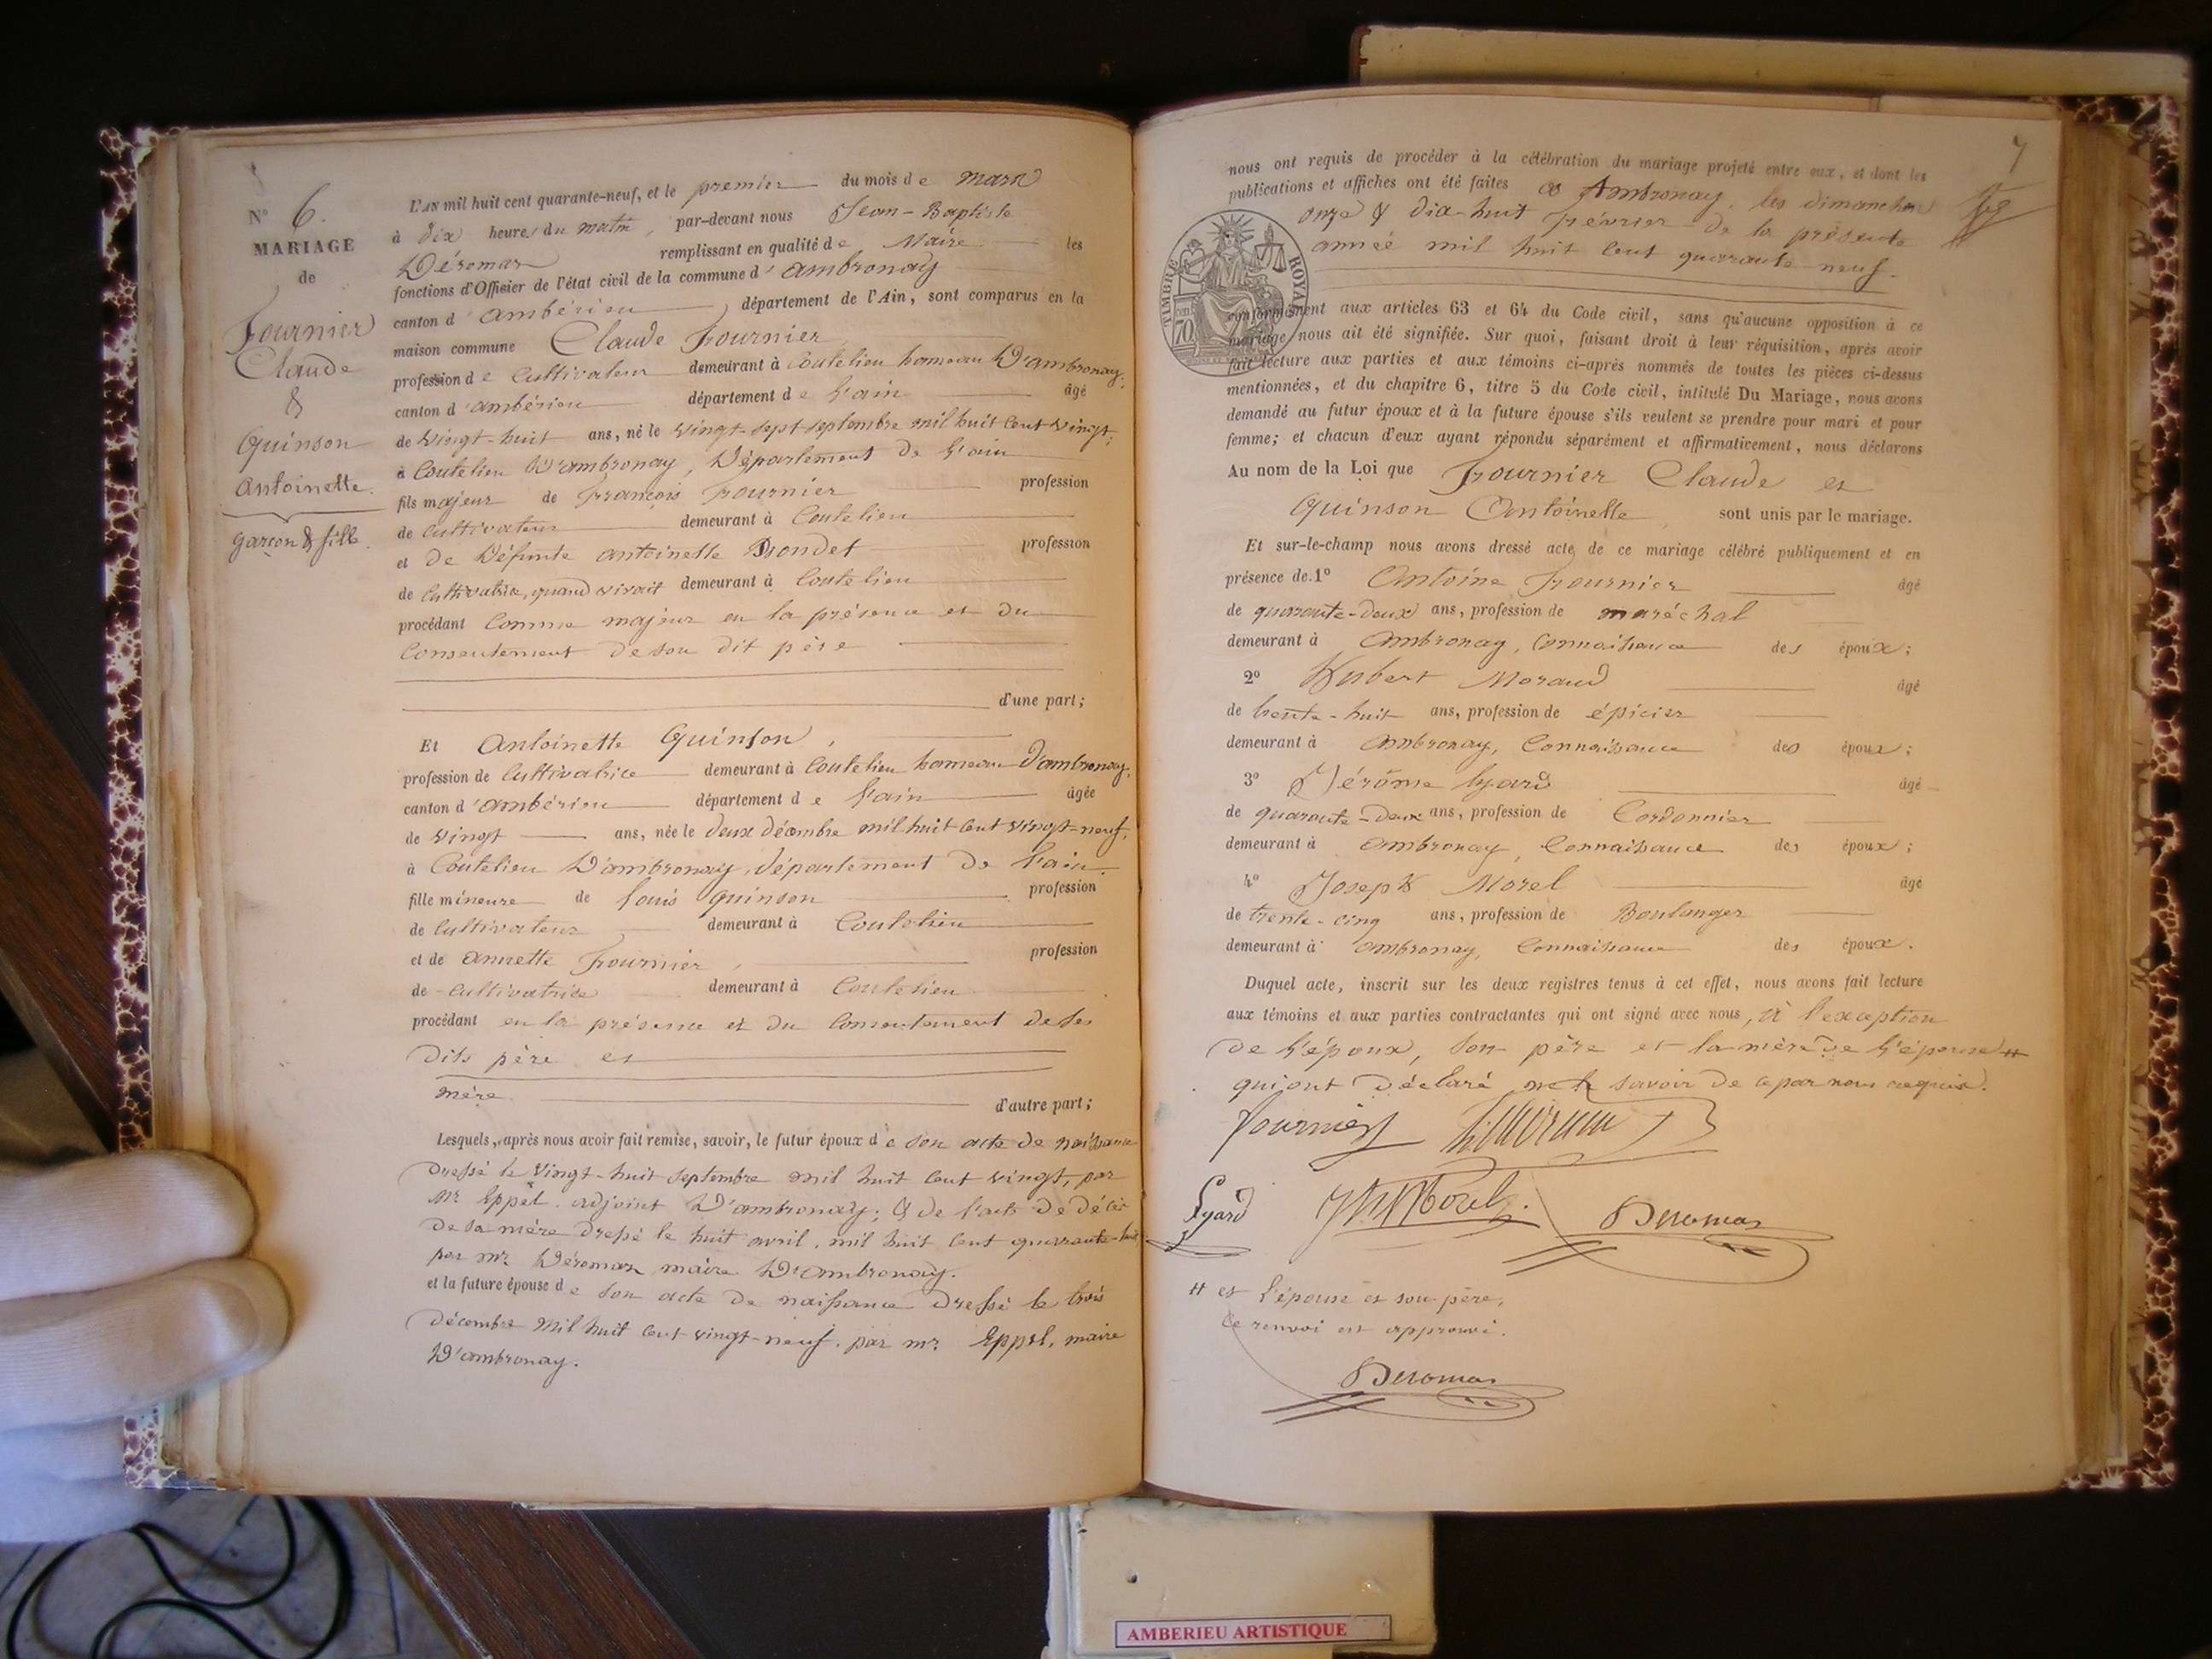 N° 6.
MARIAGE
de
Fournier
Claude
&
Quinson
Antoinette.
garçon & fille.
L'AN mil huit cent quarante-neuf, et le premier du mois de mars
à dix heures du matin, par-devant nous Jean-Baptiste
Déromas remplissant en qualité de Maire les
fonctions d'Officier de l'état civil de la commune d'ambronay
canton d'ambérieu département de l'Ain, sont comparus en la
maison commune Claude Fournier
profession de Cultivateur demeurant à Coutelieu hameau D'ambronay,
canton d'ambérieu département de l'ain âgé
de vingt-huit ans, né le vingt-sept septembre mil huit cent vingt,
à Coutelieu D'ambronay, Département de l'ain
fils majeur de François Fournier profession
de cultivateur demeurant à Coutelieu
et de Défunte antoinette Bondet profession
de Cultivatrice, quand vivait demeurant à Coutelieu
procédant Comme majeur en la présence et du
Consentement de son dit père
d'une part;
Et Antoinette Quinson,
profession de Cultivatrice demeurant à Coutelieu hameau D'ambronay,
canton d'ambérieu département de l'ain âgée
de vingt ans, née le deux décembre mil huit cent vingt-neuf,
à Coutelieu D'ambronay, département de l'ain.
fille mineure de Louis Quinson profession
de Cultivateur demeurant à Coutelieu
et de annette Fournier, profession
de Cultivatrice demeurant à Coutelieu
procédant en la présence et du Consentement de ses
Dits père et
mère d'autre part;
Lesquels, après nous avoir fait remise, savoir, le futur époux de son acte de naissance
Dressé le vingt-huit septembre mil huit cent vingt, par
Mr Eppel adjoint D'ambronay; & de l'acte de décès
de sa mère dressé le huit avril, mil huit cent quarante-huit
par mr. Déromas maire D'ambronay.
et la future épouse de son acte de naissance dressé le trois
décembre mil huit cent vingt-neuf, par mr. Eppel, maire
D'ambronay.
7
nous ont requis de procéder à la célébration du mariage projeté entre eux, et dont les
publications et affiches ont été faites à Ambronay, les dimanches
onze & dix-huit février de la présente
année mil huit cent quarante neuf.
TIMBRE ROYAL
70 cent.
conformément aux articles 63 et 64 du Code civil, sans qu'aucune opposition à ce
mariage nous ait été signifiée. Sur quoi, faisant droit à leur réquisition, après avoir
fait lecture aux parties et aux témoins ci-après nommés de toutes les pièces ci-dessus
mentionnées, et du chapitre 6, titre 5 du Code civil, intitulé Du Mariage, nous avons
demandé au futur époux et à la future épouse s'ils veulent se prendre pour mari et pour
femme; et chacun d'eux ayant répondu séparément et affirmativement, nous déclarons
Au nom de la Loi que Fournier Claude et
Quinson Antoinette, sont unis par le mariage.
Et sur-le-champ nous avons dressé acte de ce mariage célébré publiquement et en
présence de 1° Antoine Fournier âgé
de quarante-deux ans, profession de maréchal
demeurant à Ambronay, Connaissance des époux;
2° Hubert Moraud âgé
de trente-huit ans, profession de épicier
demeurant à Ambronay, Connaissance des époux;
3° Jérôme Lyard âgé
de quarante-deux ans, profession de Cordonnier
demeurant à Ambronay, Connaissance des époux;
4° Joseph Morel âgé
de trente-cinq ans, profession de Boulanger
demeurant à ambronay, Connaissance des époux.
Duquel acte, inscrit sur les deux registres tenus à cet effet, nous avons fait lecture
aux témoins et aux parties contractantes qui ont signé avec nous, à l'exception
de l'époux, son père et la mère de l'épouse #
qui ont déclaré ne le savoir de ce par nous requis.
Fournier
Lyard Morel Deromas
# et l'épouse et son père,
Ce renvoi est approuvé.
Deromas
AMBERIEU ARTISTIQUE